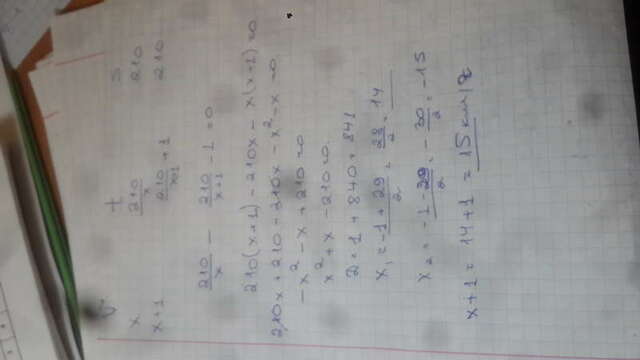 v t s
x 210/x 210
x+1 210/x+1 + 1 210
210/x - 210/x+1 - 1 = 0
210(x+1) - 210x - x(x+1) = 0
210x + 210 - 210x - x² - x = 0
-x² - x + 210 = 0
x² + x - 210 = 0
D = 1 + 840 = 841
x₁ = -1+29/2 = 28/2 = 14
x₂ = -1-29/2 = -30/2 = -15
x+1 = 14+1 = 15 км/ч